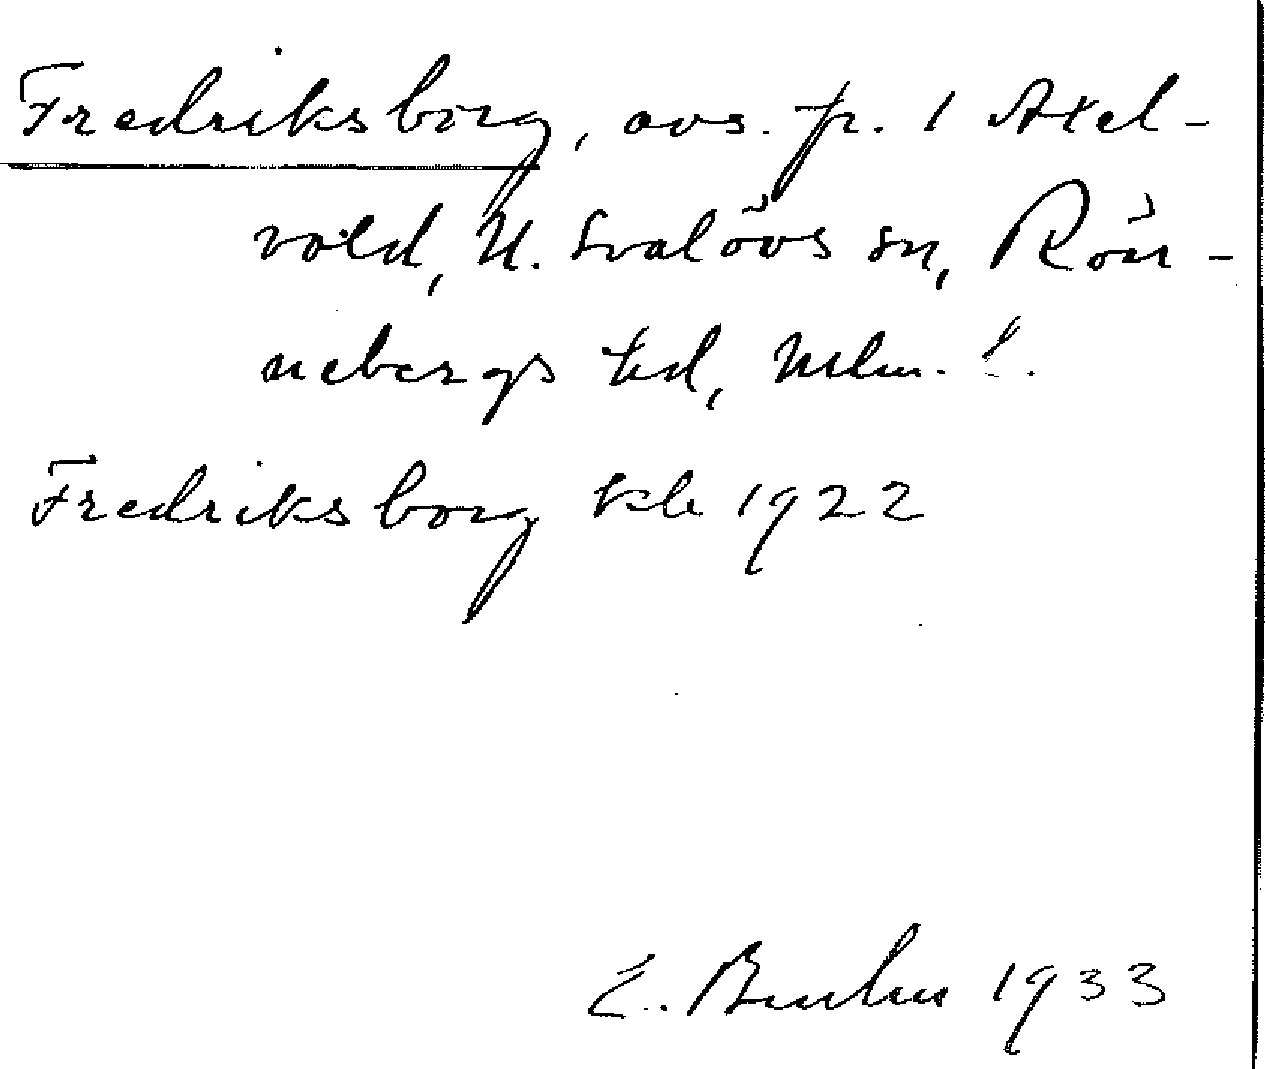 Fredriksborg, avs. fr. 1 Axel-
vold, N. Svalövs sn, Rön-
nebergs hd, Mlm. l.
Fredriksborg kk 1922
E. 1933